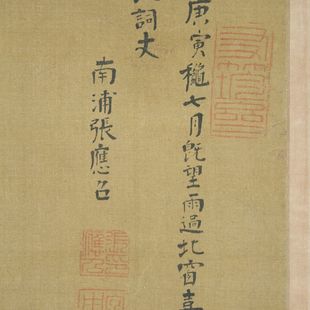 庚寅穐七月既望雨過北窗喜
詞丈
南浦張應召